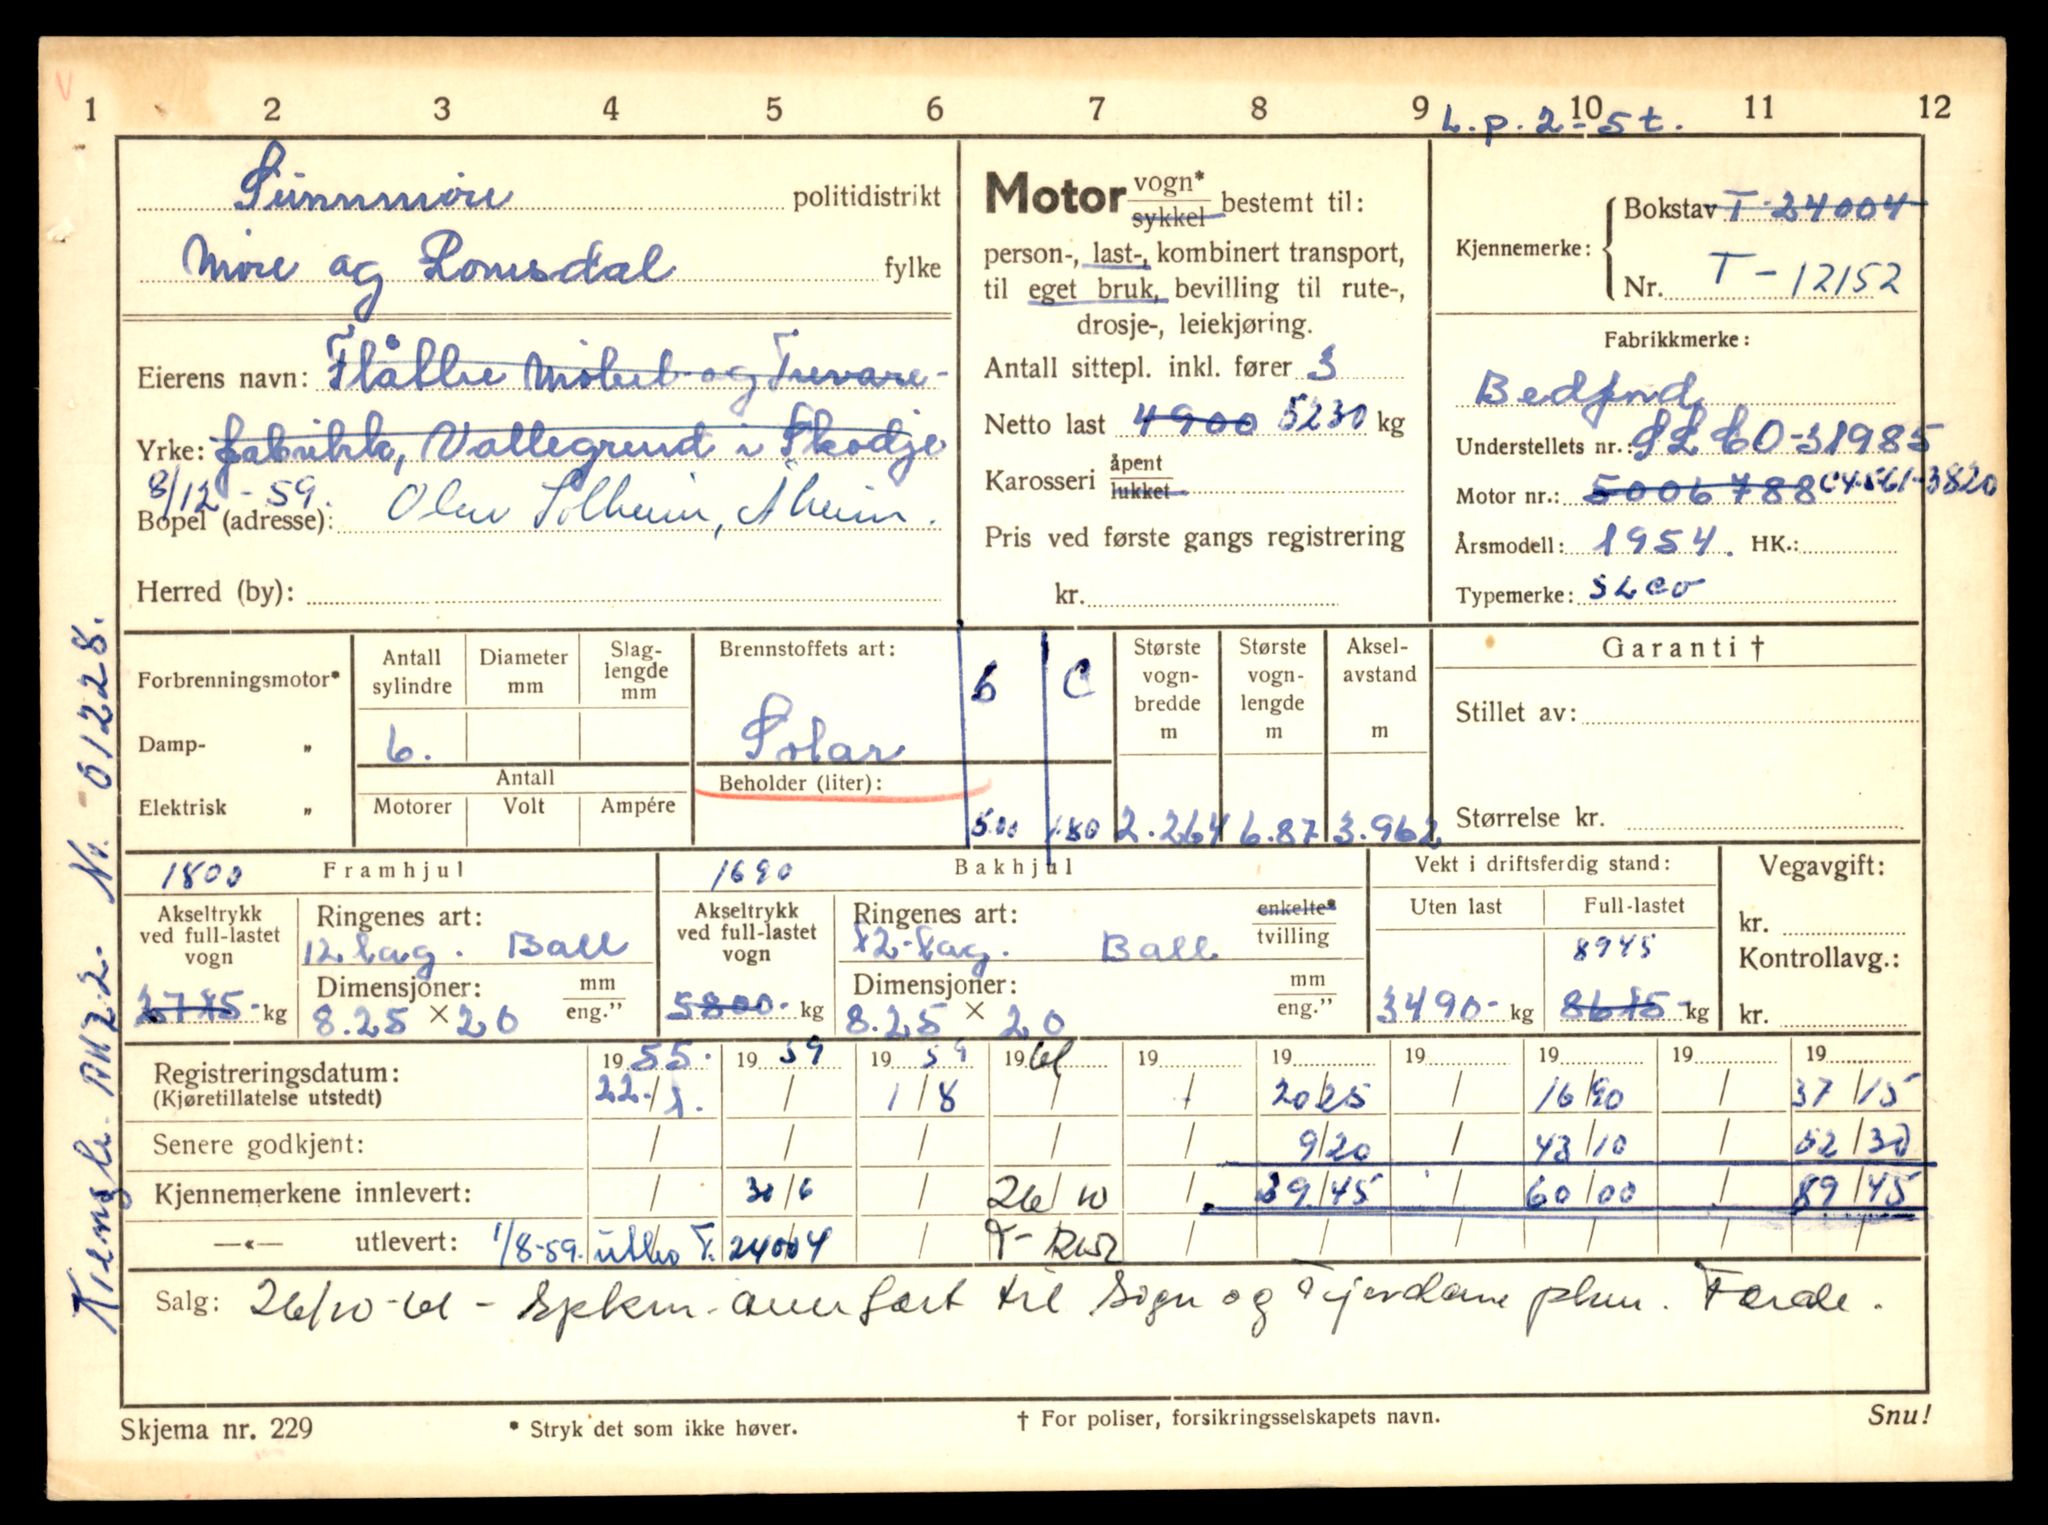 1 2 3 4 5 6 7 8 9 10 11 12
L.p. 2-5 t.
Sunnmøre politidistrikt
Møre og Romsdal fylke
Eierens navn: Flåtbe Møbel- og Trevare-
Yrke: fabrikk, Vallegrend i Skodje
8/12-59.
Bopel (adresse): Olav Solheim, Åheim.
Herred (by):
Motor vogn* sykkel bestemt til:
person-, last-, kombinert transport,
til eget bruk, bevilling til rute-,
drosje-, leiekjøring.
Antall sittepl. inkl. fører 3
Netto last 4900 5230 kg
Karosseri åpent lukket
Pris ved første gangs registrering
kr.
Kjennemerke: Bokstav T-24004
Nr. T-12152
Fabrikkmerke:
Bedford
Understellets nr.: SLCO-31985
Motor nr.: 5006788
Årsmodell: 1954. HK.:
Typemerke: SLCO
Forbrenningsmotor*
Damp- „
Elektrisk „
Antall sylindre
Diameter mm
Slag-lengde mm
6.
Antall
Motorer Volt Ampére
Brennstoffets art:
Solar
Beholder (liter):
b C
5.00 1.80
Største vogn-bredde m
Største vogn-lengde m
Aksel-avstand m
2.264 6.87 3.962
Garanti †
Stillet av:
Størrelse kr.
1800 Framhjul
Akseltrykk ved full-lastet vogn
2775- kg
Ringenes art:
12 lag. Ball
Dimensjoner: mm eng.”
8.25 × 20
1690 Bakhjul
Akseltrykk ved full-lastet vogn
5800- kg
Ringenes art: enkelte* tvilling
12-lag. Ball
Dimensjoner: mm eng.”
8.25 × 20
Vekt i driftsferdig stand:
Uten last Full-lastet
8945
3490- kg 8615- kg
Vegavgift:
kr.
Kontrollavg.:
kr.
19 55. 19 59 19 59 19 61 19 19 19 19 19 19
Registreringsdatum: 22./1. / 1/8 / / 20/25 / 16/90 / 37/15
(Kjøretillatelse utstedt)
Senere godkjent: / / / / / 9/20 / 43/10 / 52/30
Kjennemerkene innlevert: / 30/6 / 26/10 / 39/45 / 60/00 / 89/45
—«— utlevert: 1/8-59. utlev T. 24004 / T-12152
Salg: 26/10-61 - Spkm. overført til Sogn og Fjordane pkm. Førde.
Skjema nr. 229
* Stryk det som ikke høver.
† For poliser, forsikringsselskapets navn.
Snu!
Nr. 61228.